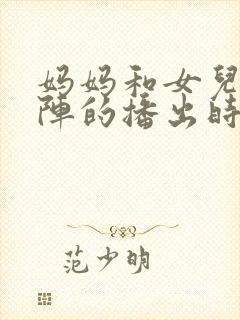 妈妈和女兒
陣的播出時
范少明